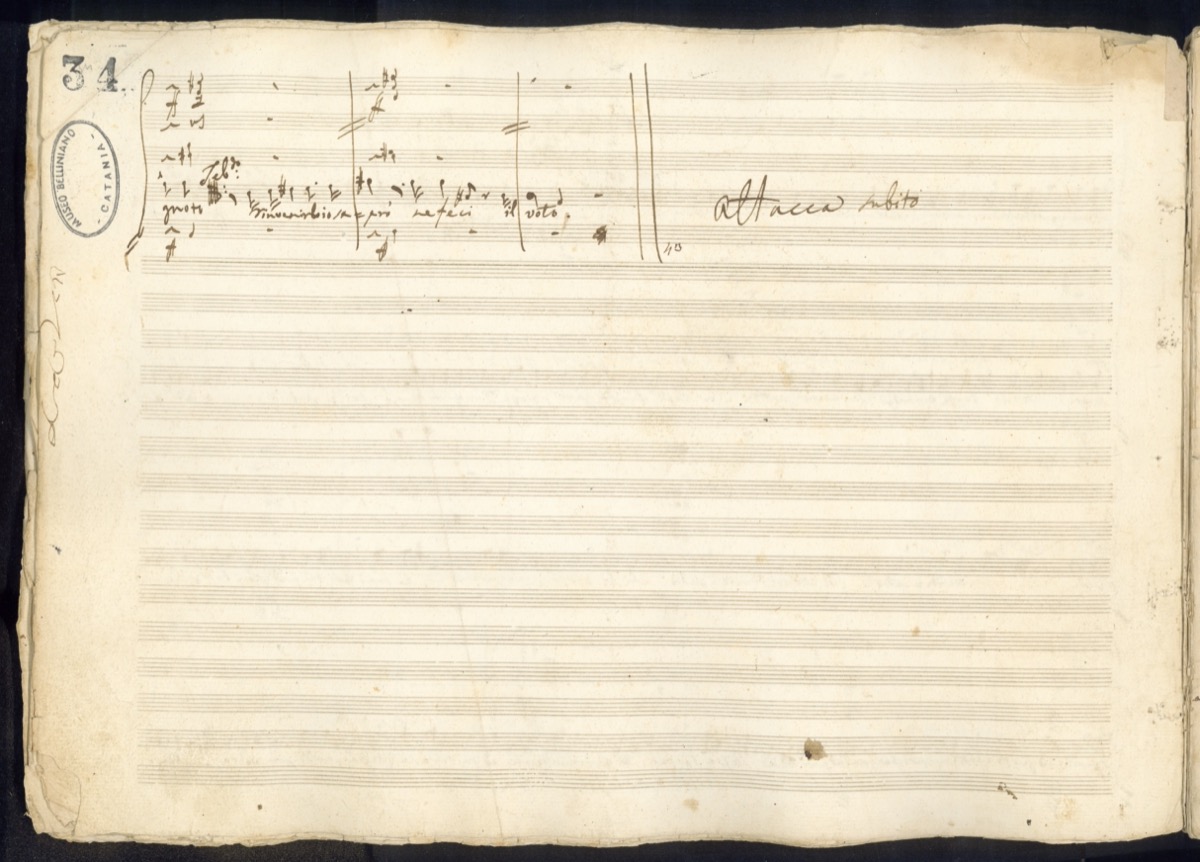 34
MUSEO BELLINIANO
- CATANIA -
Teb.º
gnoto Rinvenirlo io sa però ne feci il voto.
attacca subito